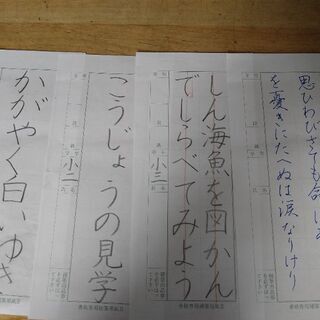 思ひわびさても命は
を憂きにたへぬは涙なりけり
しん海魚を図かん
でしらべてみよう
小三
こうじょうの見学
小二
かがやく白いゆき